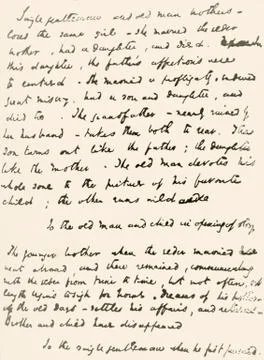 Single gentleman and old man brothers -
loved the same girl - she married the elder
brother, had a daughter, and died.
this daughter, the father's affections were
so centered. - She married a profligate, endured
great misery, had a son and daughter, and
died too. The grandfather - nearly ruined by
her husband - takes them both to rear. The
son turns out like the father; the daughter
like the mother. - The old man devotes his
whole soul to the picture of his favourite
child; the other runs wild
So the old man and child in opening of story
The younger brother when the elder married
went abroad, and there remained, communicating
with the elder from time to time, but not often, at
length begins to sigh for home, dreams of his brother
of the old days - settles his affairs, and returns -
Brother and child have disappeared
So the single gentleman when he first